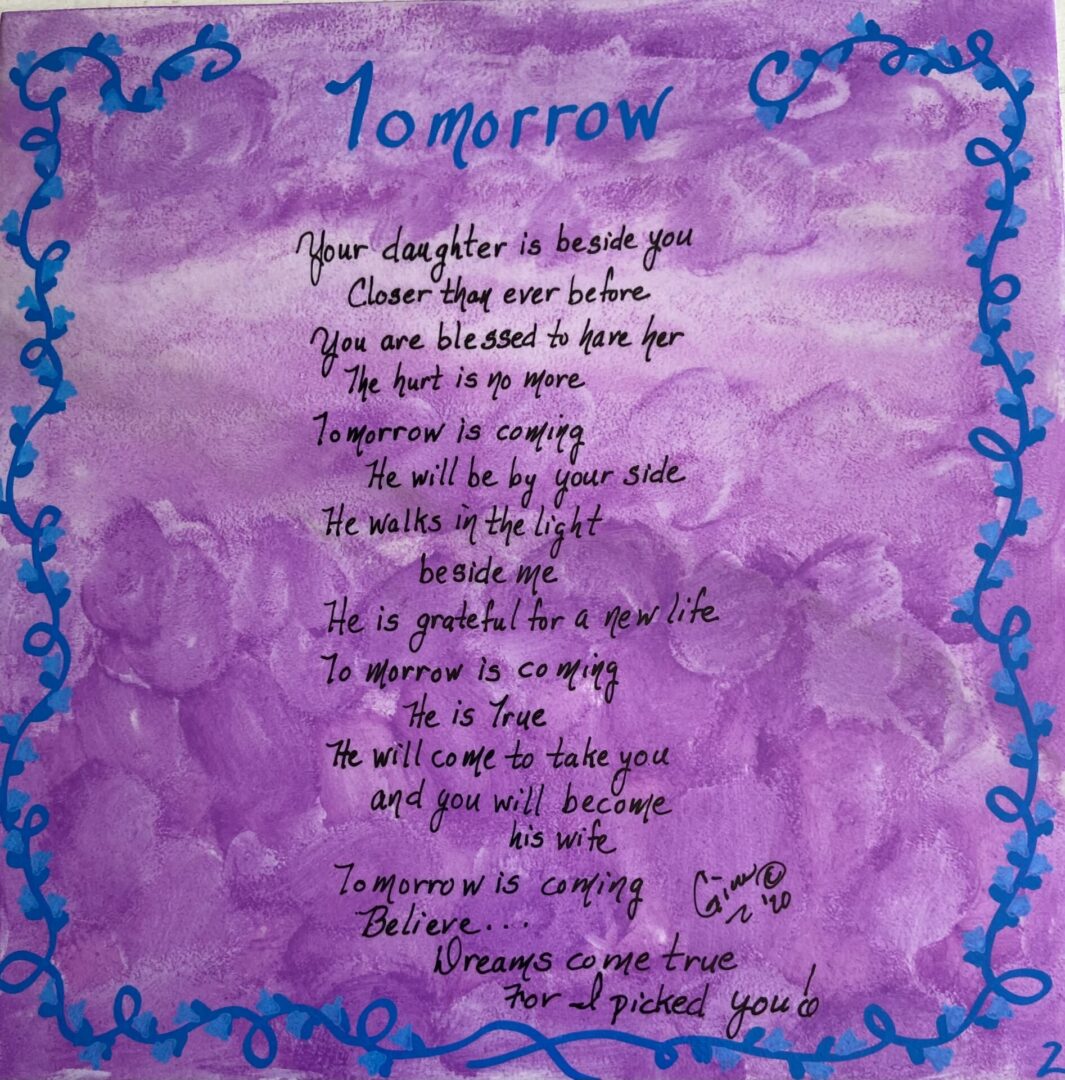 Tomorrow
Your daughter is beside you
Closer than ever before
You are blessed to have her
The hurt is no more
Tomorrow is coming
He will be by your side
He walks in the light
beside me
He is grateful for a new life
Tomorrow is coming
He is True
He will come to take you
and you will become
his wife
Tomorrow is coming
© '20
Believe...
Dreams come true
For I picked you!
2